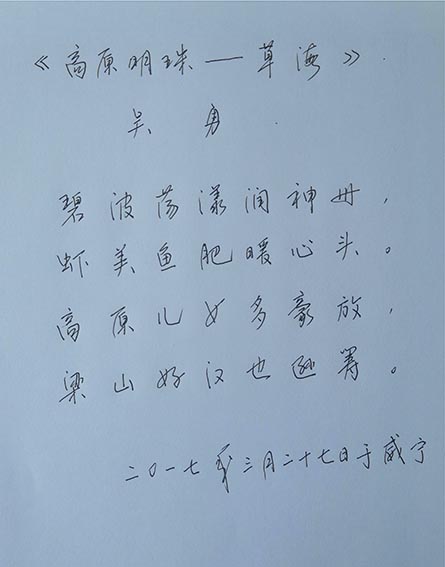 《高原明珠—草海》
吴勇
碧波荡漾润神州，
虾美鱼肥暖心头。
高原儿女多豪放，
梁山好汉也逊筹。
二〇一七年三月二十七日于威宁